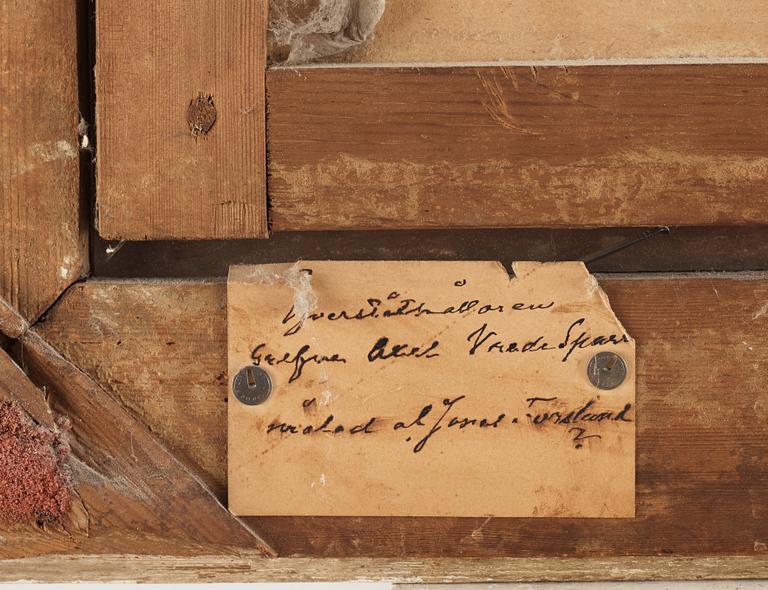 Överståthållaren
Grefven Axel Wrede Sparr
målad af Jonas Forslund
?